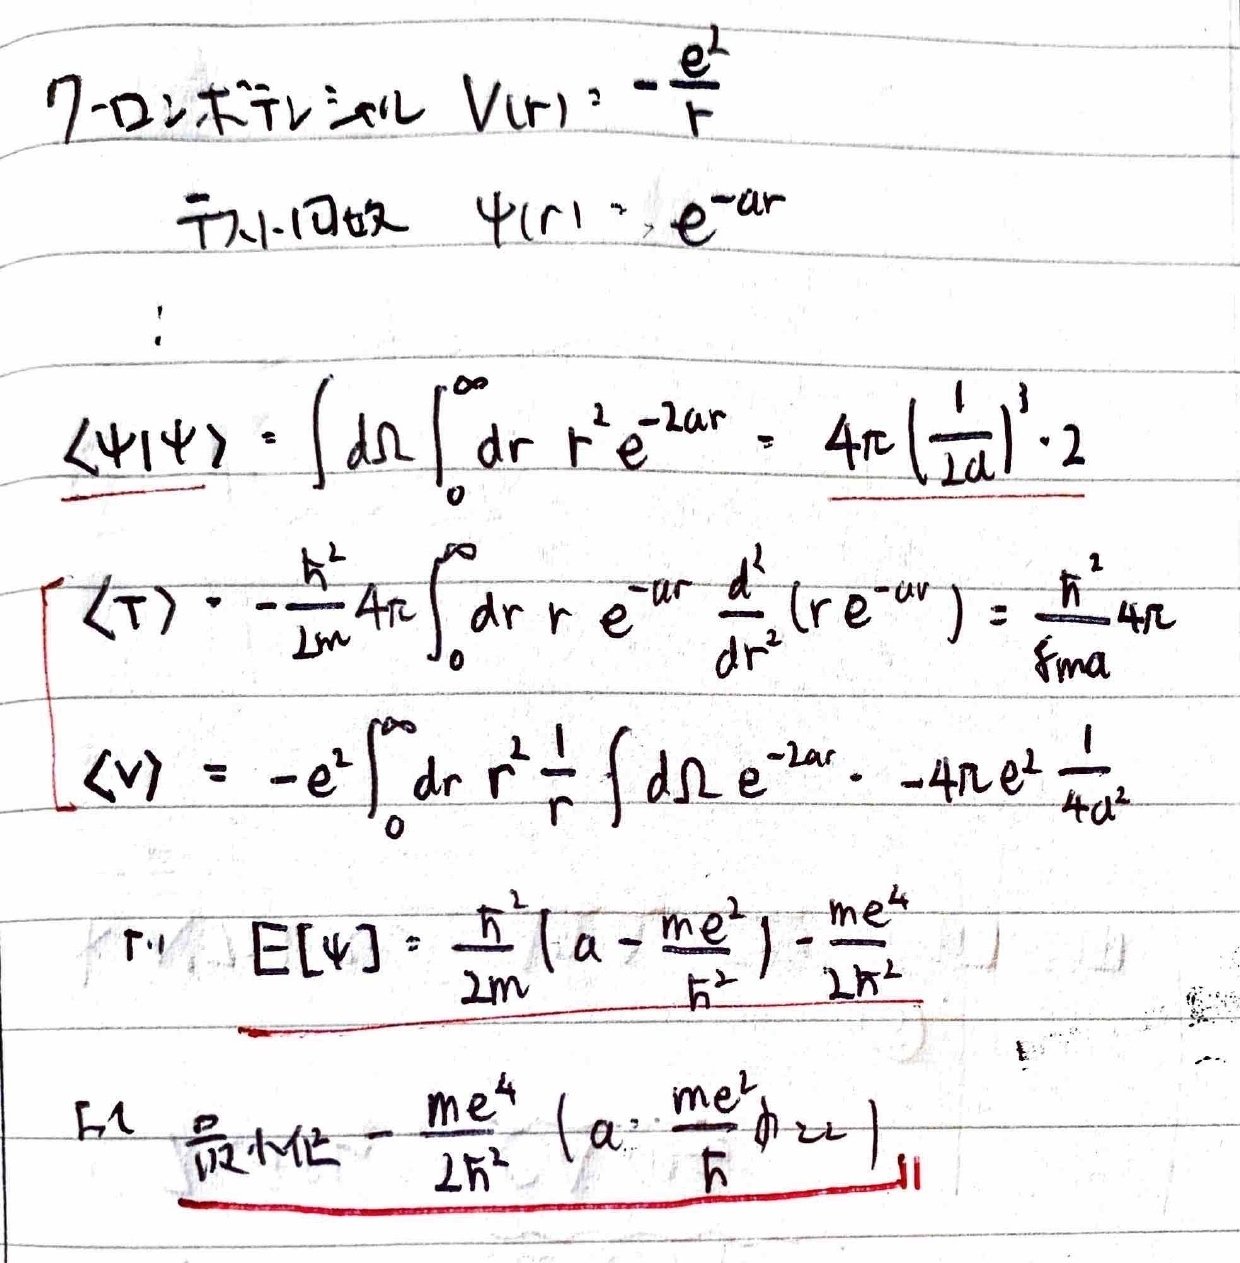 クーロンポテンシャル V(r) = -e²/r
テスト関数 ψ(r) = e^{-ar}
⋮
⟨ψ|ψ⟩ = ∫dΩ∫₀^∞ dr r² e^{-2ar} = 4π(1/2a)³·2
⟨T⟩ = -ħ²/2m 4π∫₀^∞ dr r e^{-ar} d²/dr²(re^{-ar}) = ħ²/8ma 4π
⟨V⟩ = -e²∫₀^∞ dr r² 1/r ∫dΩ e^{-2ar} = -4πe² 1/4a²
より E[ψ] = ħ²/2m (a - me²/ħ²) - me⁴/2ħ²
最小値 - me⁴/2ħ² (a = me²/ħ のとき)